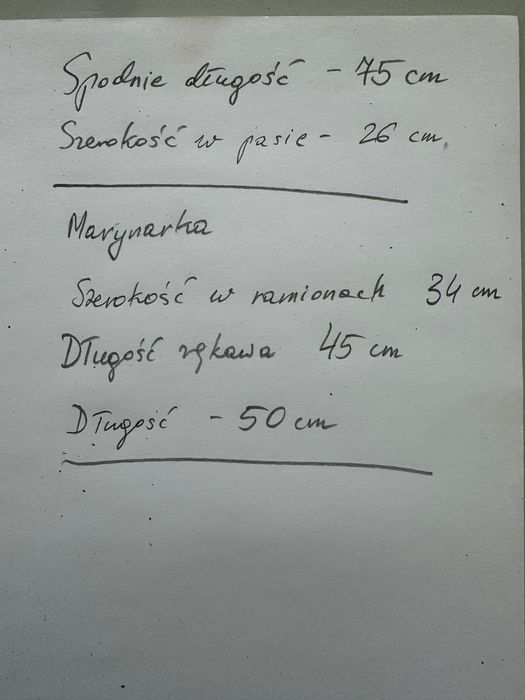 Spodnie długość - 75 cm
Szerokość w pasie - 26 cm.
Marynarka
Szerokość w ramionach 34 cm
Długość rękawa 45 cm
Długość - 50 cm